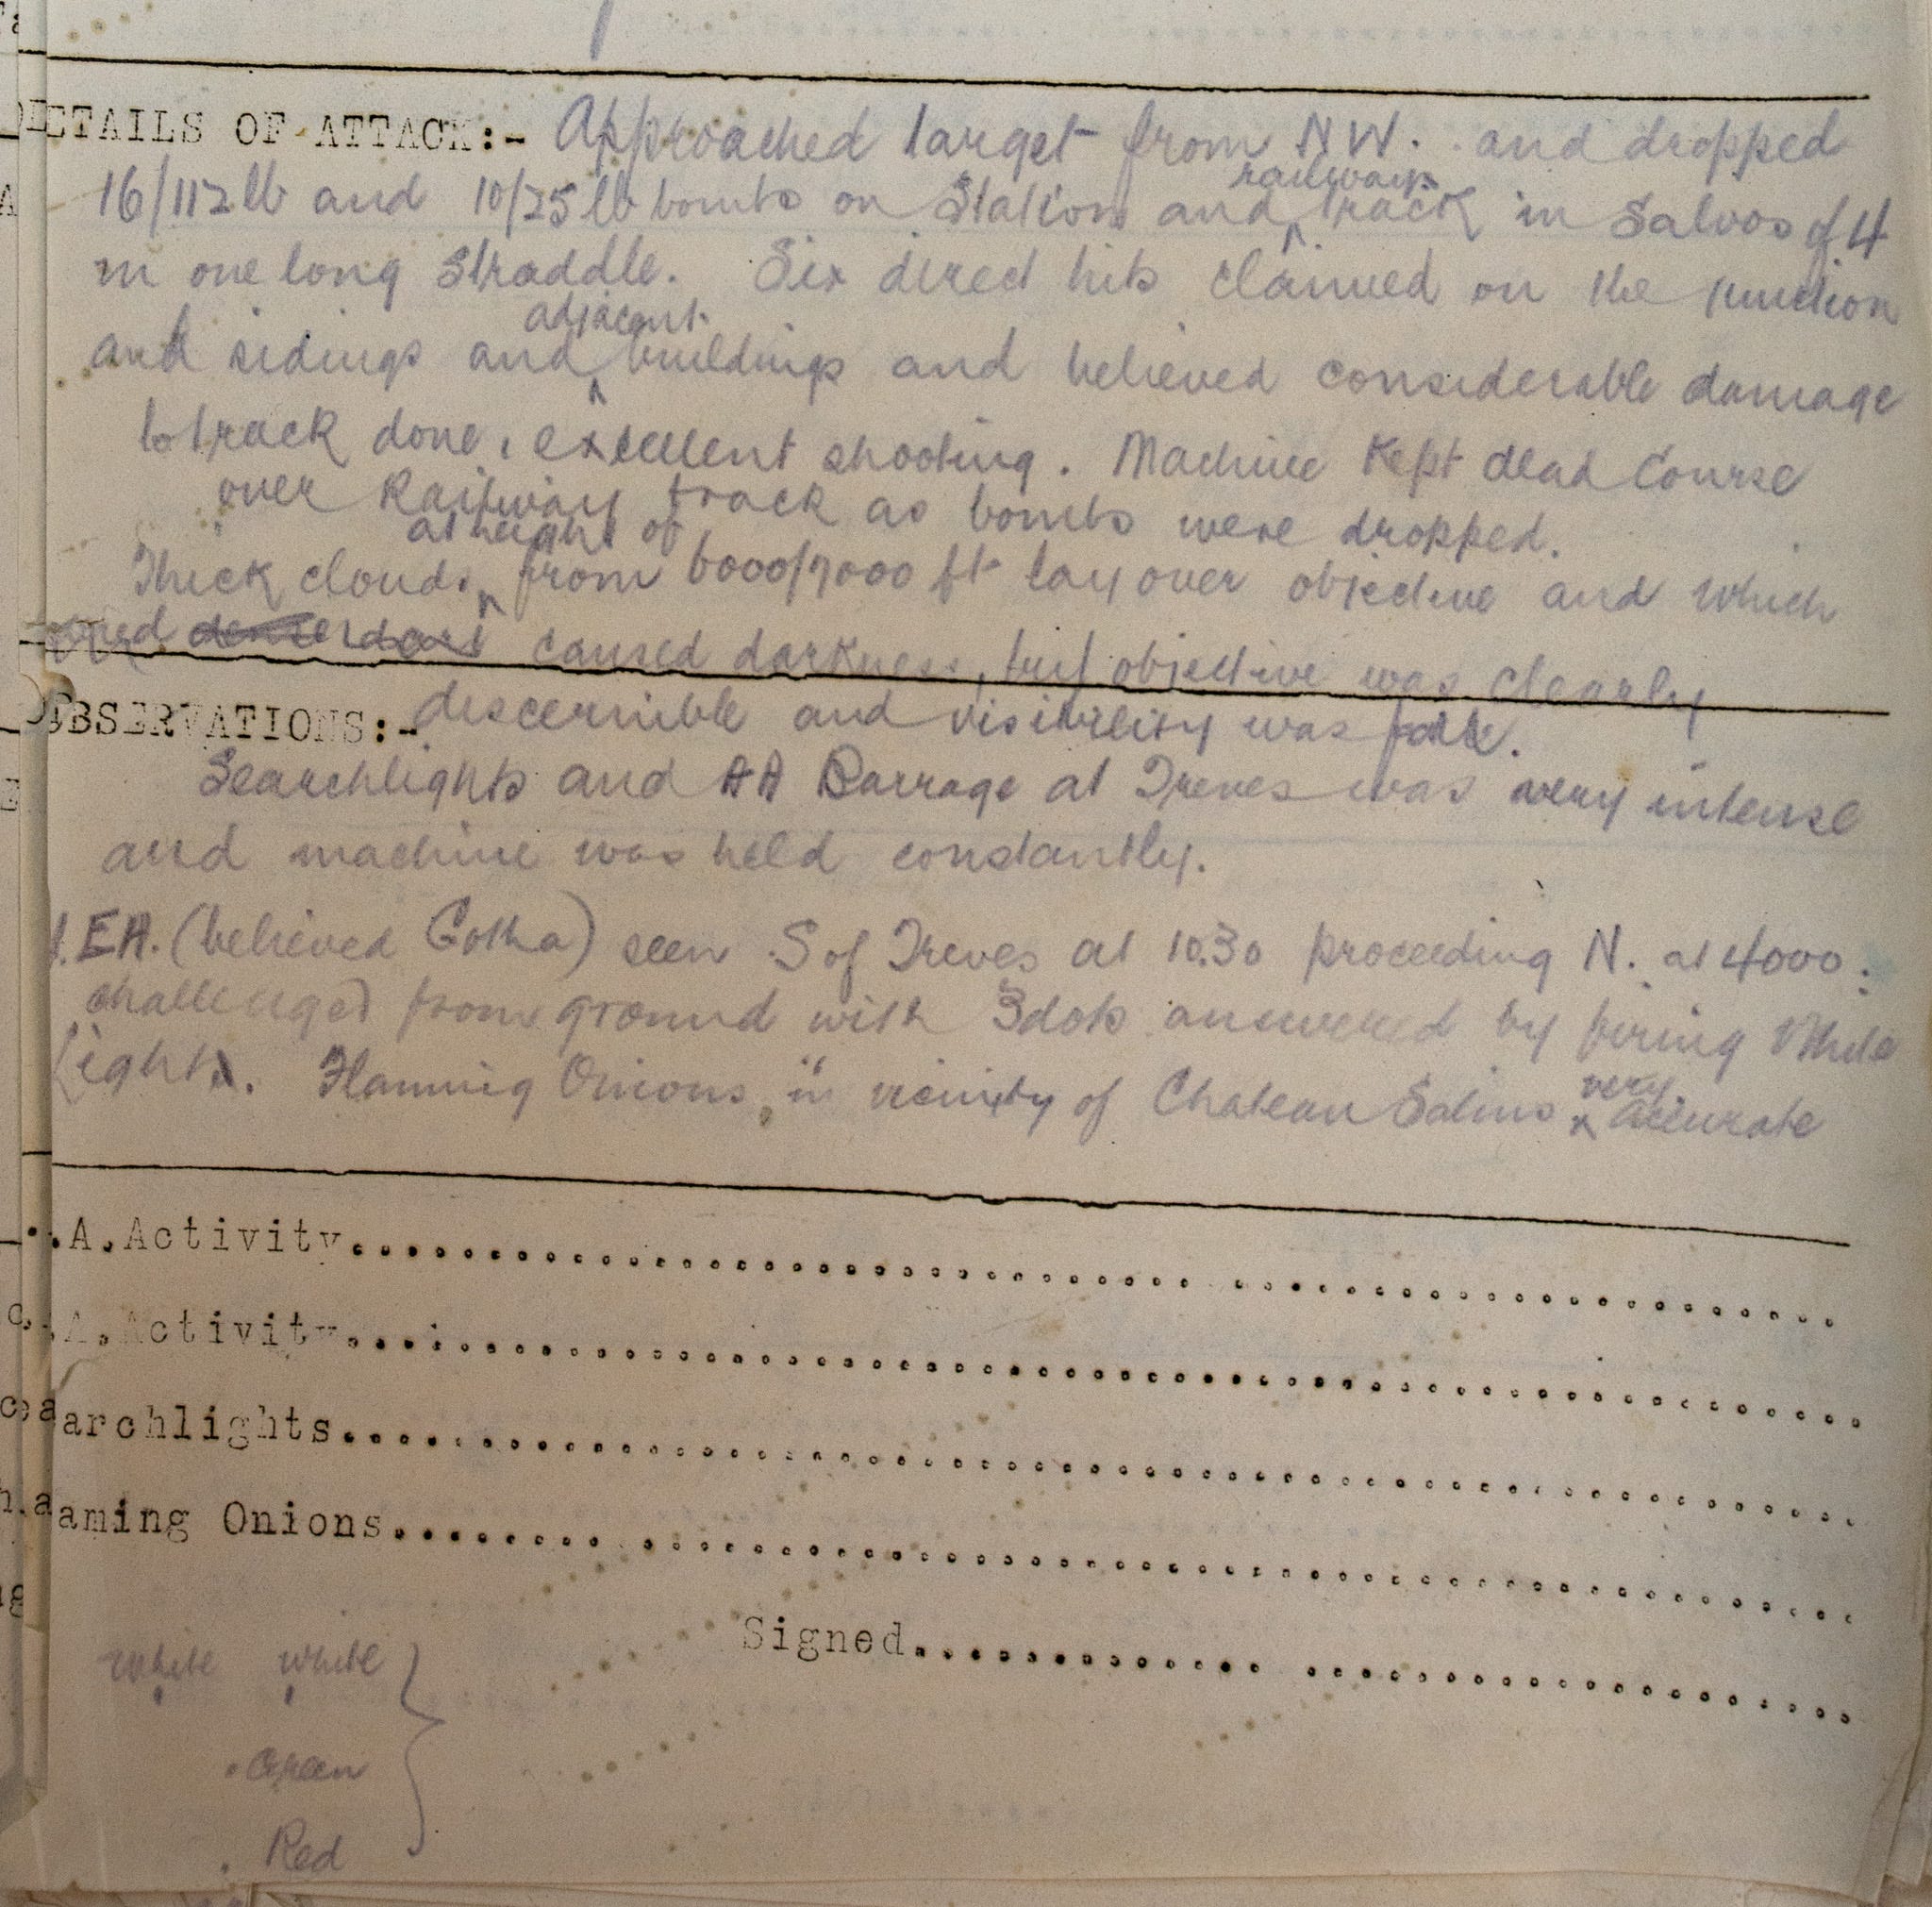 DETAILS OF ATTACK:- Approached target from NW. and dropped
16/112lb and 10/25 lb bombs on Station and railway track in Salvos of 4
in one long Straddle. Six direct hits claimed on the junction
and sidings and adjacent buildings and believed considerable damage
to track done, excellent shooting. Machine Kept dead Course
over Railway track as bombs were dropped.
Thick clouds at height of from 6000/7000 ft lay over objective and which
caused darkness, but objective was clearly
OBSERVATIONS:- discernible and visibility was
Searchlights and AA Barrage at Treves was very intense
and machine was held constantly.
1.EA. (believed Gotha) seen S of Treves at 10.30 proceeding N. at 4000.
challenged from ground with 3 dots answered by firing White
Light. Flaming Onions in vicinity of Chateau Salins very accurate
.A.Activity..........
.A.Activity..........
earchlights..........
aming Onions..........
Signed..........
White White
Green
Red